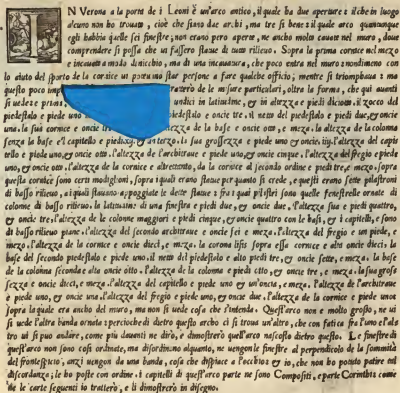 IN Verona a la porte de i Leoni è un'arco antico, il quale ha due aperture e ilche in luogo
alcuno non ho trouato, cioè che siano due archi, ma tre si bene: il quale arco quantunque
egli habbia quelle sei finestre, non erano però aperte, ne ancho molto cauate nel muro, doue
comprendere si possa che ui fussero statue di tutto rilieuo. Sopra la prima cornice nel mezo
è incauata a modo di nicchio, ma di una incauatura, che poco entra nel muro: nondimeno con
lo aiuto del sporto de la cornice ui poteuano star persone a fare qualche officio, mentre si triomphaua: ma
questo poco imp tratterò de le misure particulari, oltra la forma, che qui auanti
si uede: e prima undici in latitudine, & in altezza e piedi diciotto. il zocco del
piedestalo e piede uno piedestalo e oncie tre, il netto del piedestalo e piedi due, & oncie
una. la sua cornice e oncie tre altezza de la base e oncie otto, e meza. la altezza de la colonna
senza la base e'l capitello e piedi xij. & un terzo. la sua grossezza e piede uno, & oncie, iiij. l'altezza del capi
tello e piede uno, & oncie otto. l'altezza de l'architraue e piede uno, & oncie cinque. l'altezza del fregio e piede
uno, & oncie otto. l'altezza de la cornice e altretanto, da la cornice al secondo ordine e piedi tre, e mezo. sopra
questa cornice sono certi modiglioni, sopra i quali erano statue per quanto si crede, e questi erano sette pilastroni
di basso rilieuo, a i quali stauano appoggiate le dette statue: e fra i quai pilastri sono quelle fenestrelle ornate di
colonne di basso rilieuo. la latitudine di una finestra e piedi due, & oncie due. l'altezza sua e piedi quattro,
& oncie tre, l'altezza de le colonne maggiori e piedi cinque, & oncie quattro con le basi, & i capitelli, e sono
di basso rilieuo piane. l'altezza del secondo architraue e oncie sei e meza. l'altezza del fregio e un piede, e
mezo. l'altezza de la cornice e oncie dieci, e meza. la corona lisis sopra essa cornice e alta oncie dieci. la
base del secondo piedestalo e piede uno. il netto del piedestalo e alto piedi tre, & oncie sette, e meza. la base
de la colonna seconda e alta oncie otto. l'altezza de la colonna e piedi otto, & oncie tre, e meza. la sua gros
sezza e oncie dieci, e meza. l'altezza del capitello e piede uno & un'oncia, e meza, l'altezza de l'architraue
e piede uno, & oncie una. l'altezza del fregio e piede uno, & oncie due. l'altezza de la cornice e piede uno:
sopra la quale era ancho del muro, ma non si uede cosa che s'intenda. Quest'arco non e molto grosso, ne ui
si uede l'altra banda ornata: percioche di dietro questo archo ci si troua un'altro, che con fatica fra l'uno e l'al
tro ui si puo andare, come piu dauanti ne dirò, e dimostrerò quell'arco nascosto dietro questo. Le finestre di
quest'arco non sono cosi ordinate, ma disordinano alquanto, ne uengon le finestre al perpendicolo de la sommità
del frontespicio, anzi uengon da una banda, cosa che dispiace a l'occhio: & io, che non ho potuto patire tal
discordanza, le ho poste con ordine. i capitelli di quest'arco parte ne sono Compositi, e parte Corinthii: come
de le carte seguenti io tratterò, e li dimostrerò in disegno.